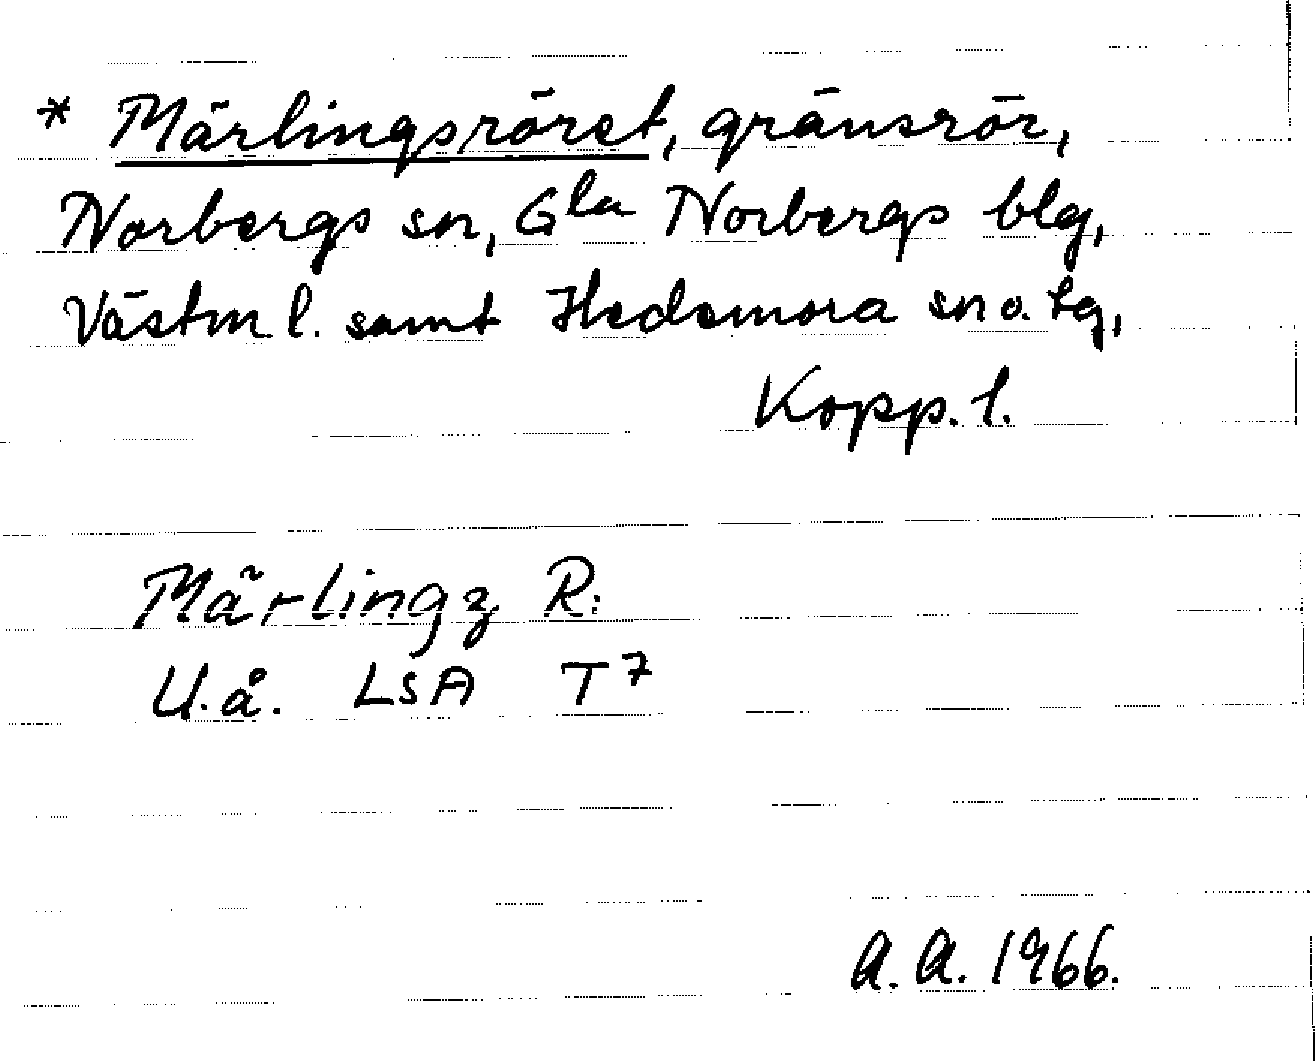 * Märlingsröret, gränsrör,
Norbergs sn, Gla Norbergs blg,
Västm l. samt Hedemora sn o. tg,
Kopp. l.
Märlingz R:
U.å. LSA T7
A.A. 1966.